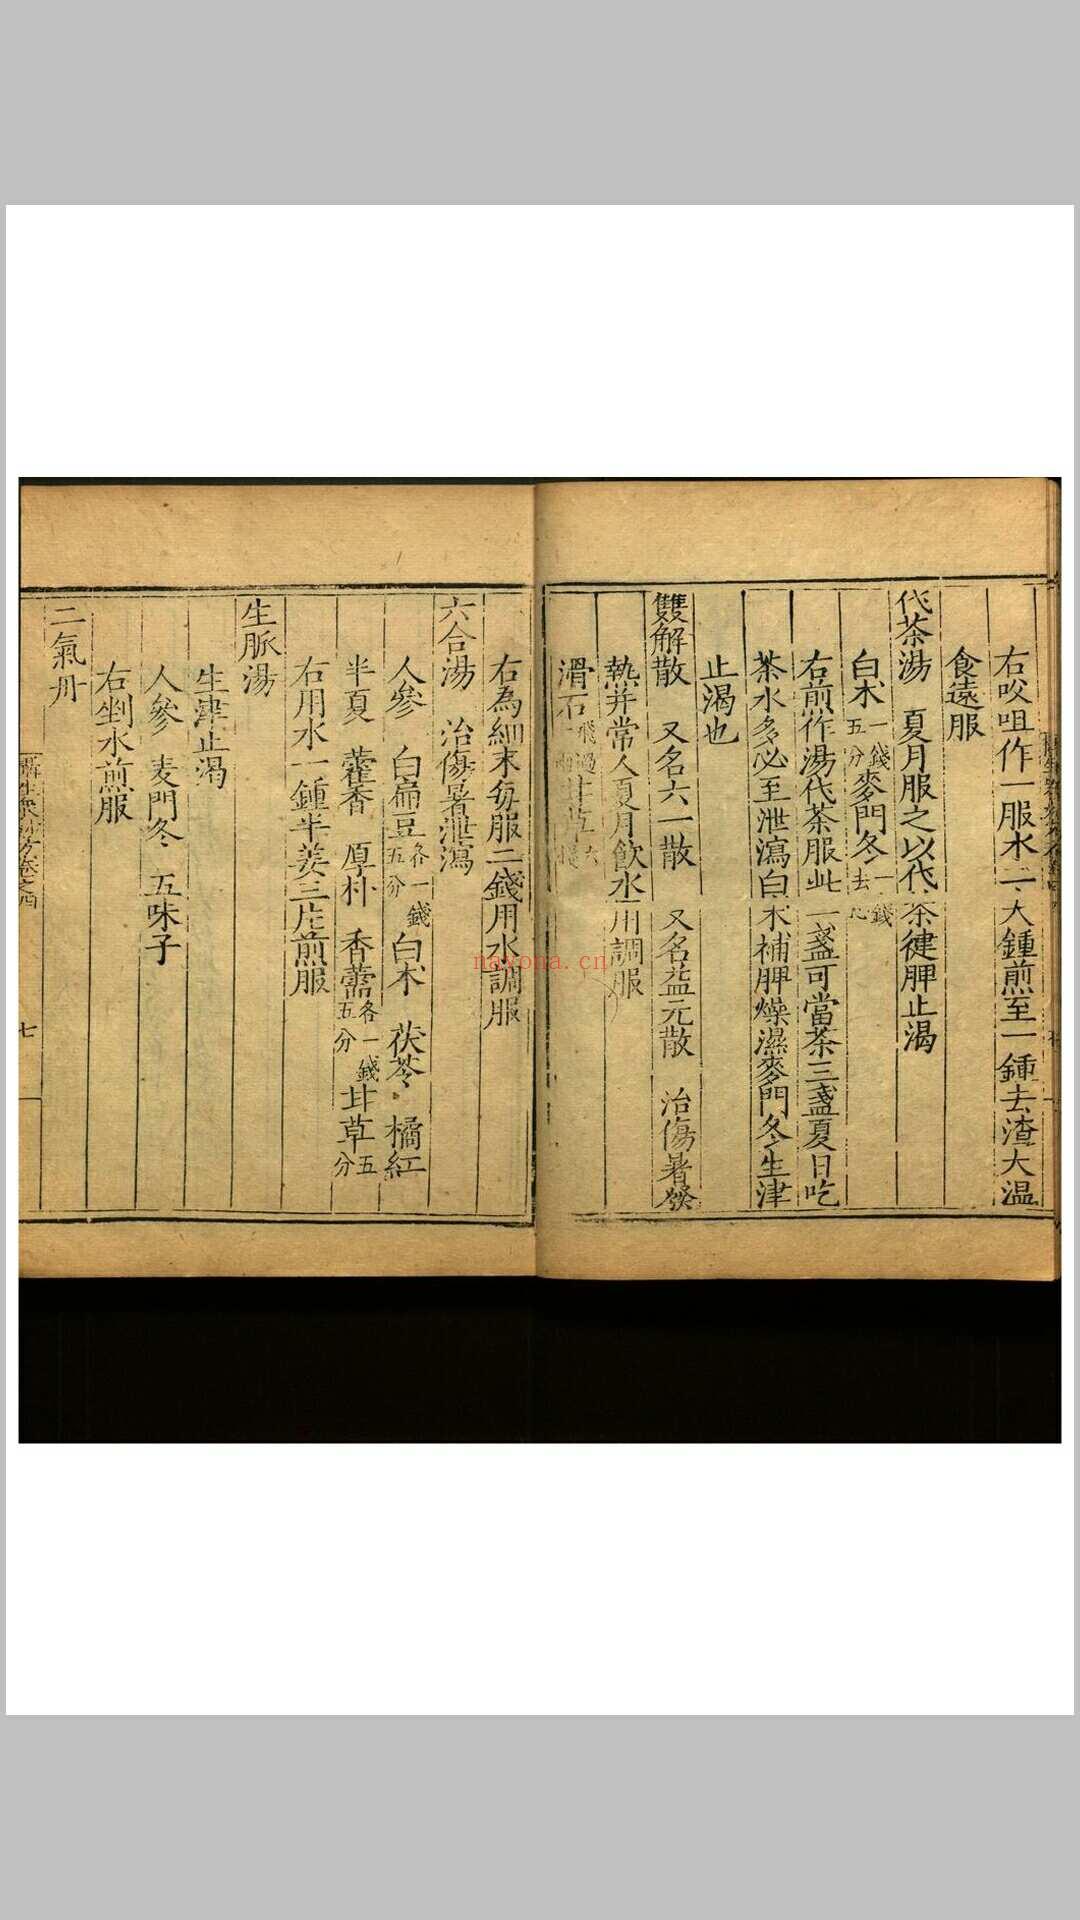 右㕮咀作一服水二大鍾煎至一鍾去渣大温
食遠服
代茶湯　夏月服之以代茶健脾止渴
白术一錢五分麥門冬一錢去心
右煎作湯代茶服此一盞可當茶三盞夏日吃
茶水多必至泄瀉白术補脾燥濕麥門冬生津
止渴也
雙解散　又名六一散　又名益元散　治傷暑發
熱并常人夏月飲水用調服
滑石飛過六
右為細末每服二錢用水調服
六合湯　治傷暑泄瀉
人參　白扁豆各一錢五分白术　茯苓　橘紅
半夏　藿香　厚朴　香薷各一錢五分甘草五分
右用水一鍾半姜三片煎服
生脈湯
生津止渴
人參　麦門冬　五味子
右剉水煎服
二氣丹
七
nayona.cn